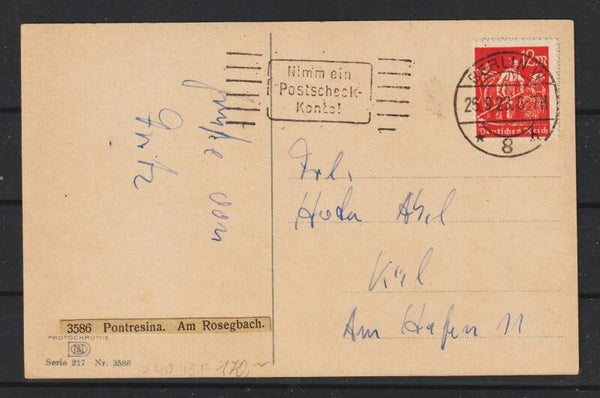 Nimm ein
Postscheck-
Konto!
BERLIN
8
12 M
Deutsches Reich
Grüße von
Fritz
Frl.
Am Hafen 11
3586 Pontresina. Am Rosegbach.
PHOTOCHROMIE
Serie 217 Nr. 3586
170,-